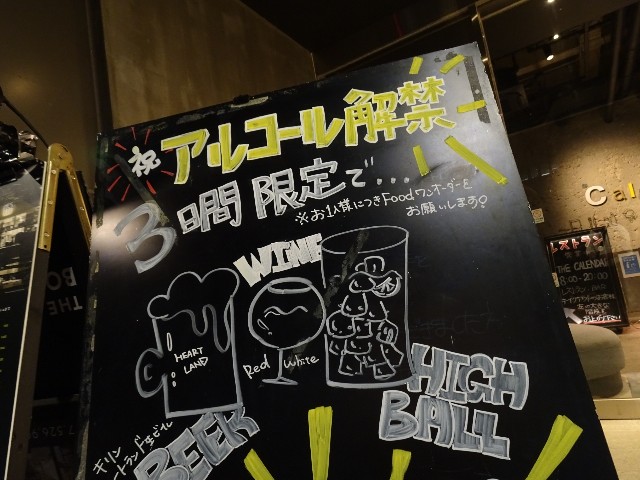 祝 アルコール解禁
3日間限定で...
※お1人様につきFoodワンオーダーを
お願いします!
WINE
HEART
LAND
Red White
HIGH
BALL
キリン
ートランド生ビール
BEER
Cal
レストラン
THE CALENDAR
8:00-20:00